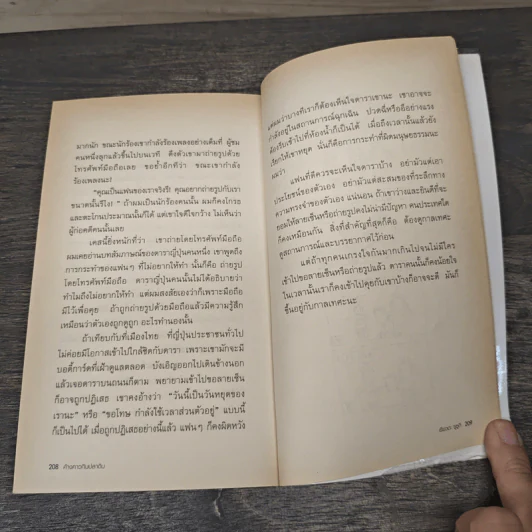 มากนัก ขณะนักร้องเขากำลังร้องเพลงอย่างเต็มที่ ผู้ชม
คนหนึ่งลุกแล้วขึ้นไปบนเวที ดึงตัวเขามาถ่ายรูปด้วย
โทรศัพท์มือถือเลย ขอย้ำอีกทีว่า ขณะเขากำลัง
ร้องเพลงนะ!
"คุณเป็นแฟนของเราจริงรึ คุณอยากถ่ายรูปกับเรา
ขนาดนั้นรึไง!" ถ้าผมเป็นนักร้องคนนั้น ผมก็คงโกรธ
และตะโกนประมาณนั้นก็ได้ แต่เขาใจดีใจกว้าง ไม่เห็นว่า
ผู้ก่อคดีคนนั้นเลย
เคสนี้ยิ่งหนักที่ว่า เขาถ่ายโดยโทรศัพท์มือถือ
ผมเคยอ่านบทสัมภาษณ์ของดาราญี่ปุ่นคนหนึ่ง เขาพูดถึง
การกระทำของแฟนๆ ที่ไม่อยากให้ทำ นั่นก็คือ ถ่ายรูป
โดยโทรศัพท์มือถือ ดาราญี่ปุ่นคนนั้นไม่ได้อธิบายว่า
ทำไมถึงไม่อยากให้ทำ แต่ผมสงสัยเองว่าก็เพราะมือถือ
มีไว้เพื่อคุย ถ้าถูกถ่ายรูปด้วยมือถือแล้วมีความรู้สึก
เหมือนว่าตัวเองถูกดูถูก อะไรทำนองนั้น
ถ้าเทียบกับที่เมืองไทย ที่ญี่ปุ่นประชาชนทั่วไป
ไม่ค่อยมีโอกาสเข้าไปใกล้ชิดกับดารา เพราะเขามักจะมี
บอดี้การ์ดที่เฝ้าดูแลตลอด บังเอิญออกไปเดินข้างนอก
แล้วเจอดาราบนถนนก็ตาม พยายามเข้าไปขอลายเซ็น
ก็อาจถูกปฏิเสธ เขาคงอ้างว่า "วันนี้เป็นวันหยุดของ
เรานะ" หรือ "ขอโทษ กำลังใช้เวลาส่วนตัวอยู่" แบบนี้
ก็เป็นไปได้ เมื่อถูกปฏิเสธอย่างนี้แล้ว แฟนๆ ก็คงผิดหวัง
208 ค้างคาวกินปลาดิบ
แต่ผมว่าบางทีเราก็ต้องเห็นใจดาราเขานะ เขาอาจจะ
กำลังอยู่ในสถานการณ์ฉุกเฉิน ปวดฉี่หรืออึอย่างแรง
ต้องรีบเข้าไปที่ห้องน้ำก็เป็นได้ เมื่อถึงเวลานั้นแล้วยัง
เรียกให้เขาหยุด นั่นก็คือการกระทำที่ผิดมนุษยธรรมนะ
ผมว่า
แฟนที่ดีควรจะเห็นใจดาราบ้าง อย่ามัวแต่เอา
ประโยชน์ของตัวเอง อย่ามัวแต่สะสมของที่ระลึกทาง
ความทรงจำของตัวเอง แน่นอน ถ้าเขาว่างและยินดีที่จะ
ยอมให้ลายเซ็นหรือถ่ายรูปคงไม่น่ามีปัญหา คนประเทศใด
ก็คงเหมือนกัน สิ่งที่สำคัญที่สุดก็คือ ต้องดูกาลเทศะ
ดูสถานการณ์และบรรยากาศไว้ก่อน
แต่ถ้าทุกคนเกรงใจกันมากเกินไปจนไม่มีใคร
เข้าไปขอลายเซ็นหรือถ่ายรูปแล้ว ดาราคนนั้นก็คงน้อยใจ
ในเวลานั้นเราก็คงเข้าไปคุยกับเขาบ้างก็อาจจะดี มันก็
ขึ้นอยู่กับกาลเทศะนะ
209